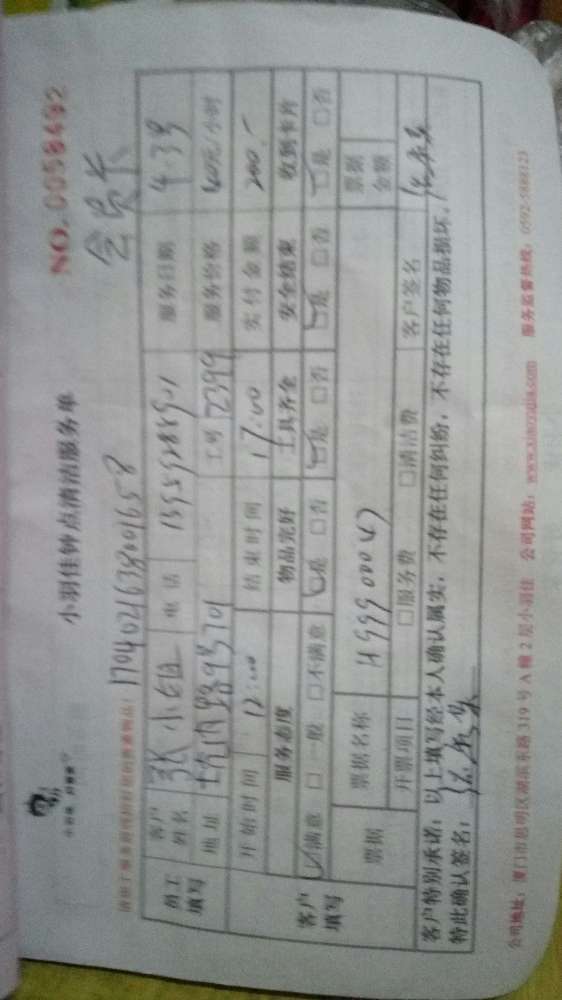 小羽佳钟点清洁服务单
NO.0058492
会员卡
1704021638001658
员工填写 客户姓名 张小姐 电话 服务日期 4.39
地址 工号 2399 服务价格 40元/小时
开始时间 12:00 结束时间 17:00 实付金额 200.-
客户填写 服务态度 物品完好 工具齐全 安全结束 收到卡片
☑满意 □一般 □不满意 ☑是 □否 ☑是 □否 ☑是 □否 ☑是 □否
票据 票据名称 票据金额
开票项目 □服务费 □清洁费 客户签名
客户特别承诺：以上填写经本人确认属实，不存在任何纠纷，不存在任何物品损坏，
特此确认签名：
公司地址：厦门市思明区湖滨东路319号A幢2层小羽佳 公司网站：www.xiaoyujia.com 服务监督热线：0592-5888123